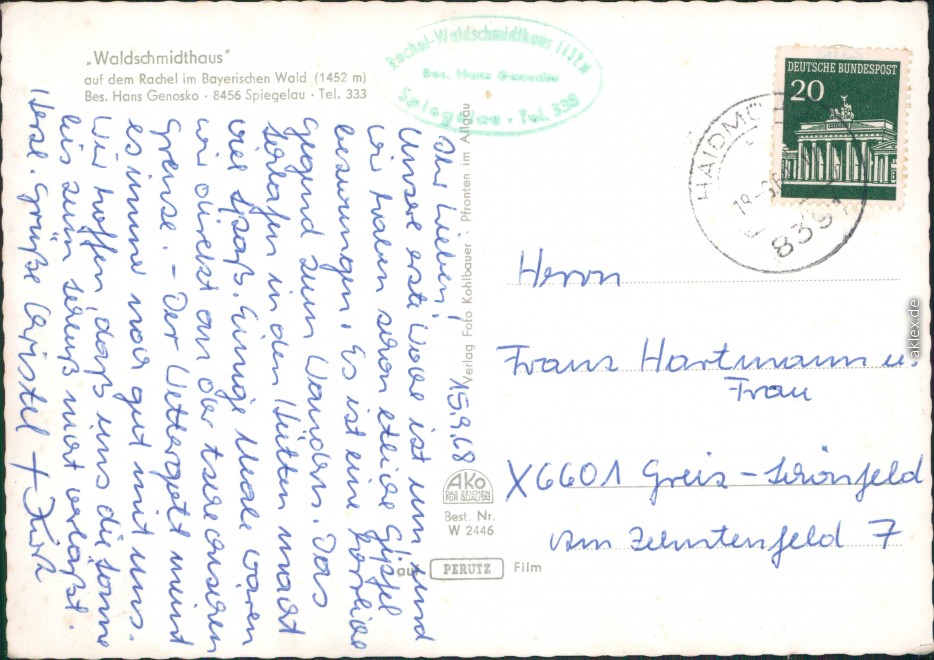 „Waldschmidthaus"
auf dem Rachel im Bayerischen Wald (1452 m)
Bes. Hans Genosko · 8456 Spiegelau · Tel. 333
Rachel-Waldschmidthaus 1452 M
Bes. Hans Genosko
Spiegelau · Tel. 333
DEUTSCHE BUNDESPOST
20
HAIDM
8391
15.9.68
Ihr Lieben!
Unsere erste Woche ist um und
wir haben schon etliche Gipfel
bezwungen. Es ist eine herrliche
Gegend zum Wandern. Das
Schlafen in den Hütten macht
viel Spaß. Einige Male waren
wir direkt an der tschechischen
Grenze. – Der Wettergott meint
es immer noch gut mit uns.
Wir hoffen, daß uns die Sonne
bis zum Schluß nicht verläßt.
Herzl. Grüße Christel +
Verlag Foto Kohlbauer · Pfronten im Allgäu
AKO
DAS ZEICHEN
FÜR QUALITÄT
Best. Nr.
W 2446
auf PERUTZ Film
Herrn
Franz Hartmann u.
Frau
X6601 Greiz - Schönfeld
Am Zehntenfeld 7
aklex.de